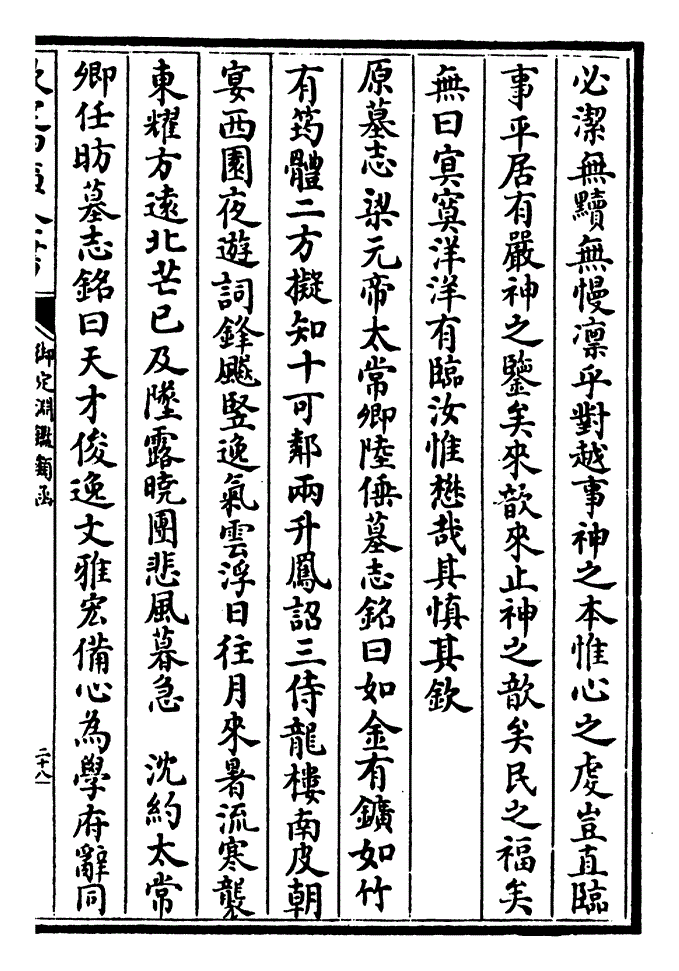 必潔無黷無慢凛乎對越事神之本惟心之虔豈直臨
事平居有嚴神之鑒矣來歆來止神之歆矣民之福矣
無曰寘寞洋洋有臨汝惟懋哉其慎其欽
原墓志梁元帝太常卿陸倕墓志銘曰如金有鑛如竹
有筠體二方擬知十可鄰兩升鳳詔三侍龍樓南皮朝
宴西園夜遊詞鋒飈豎逸氣雲浮日往月來暑流寒襲
東耀方遠北芒已及墜露曉團悲風暮急　沈約太常
卿任昉墓志銘曰天才俊逸文雅宏備心為學府辭同
御定淵鑑類函
二十八